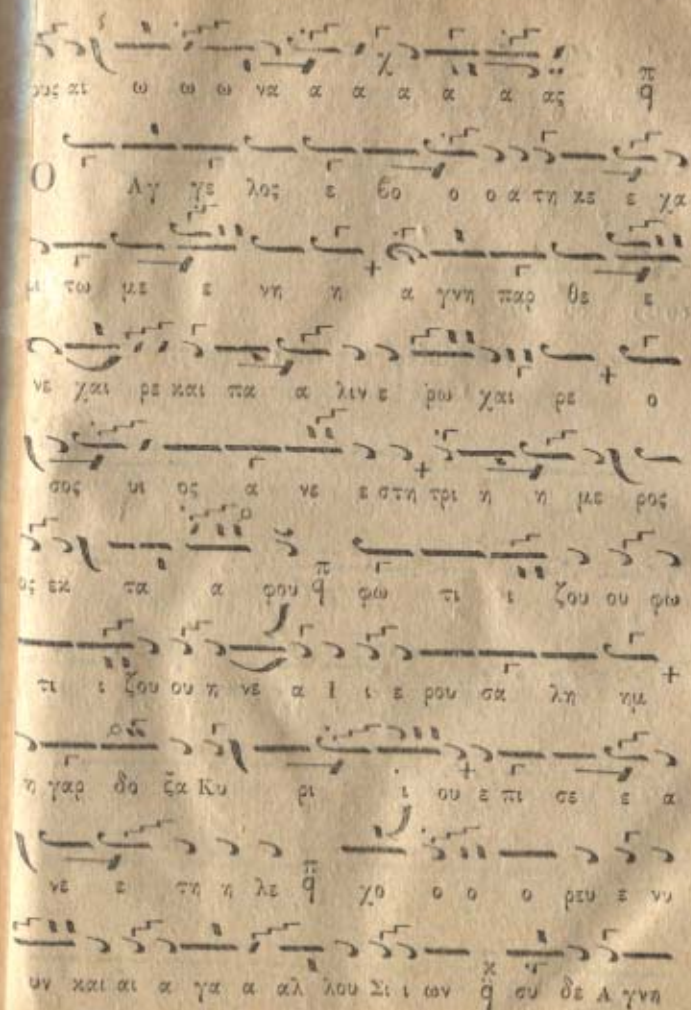 ους αι ω ω ω να α α α α α ας π q
Ο Αγ γε λος ε βο ο ο α τη κε ε χα
ρι τω με ε νη η α γνη παρ θε ε
νε χαι ρε και πα α λιν ε ρω χαι ρε ο
σος υι ος α νε ε στη τρι η η με ρος
ος εκ τα α φου π q φω τι ι ζου ου φω
τι ι ζου ου η νε α Ι ι ε ρου σα λη ημ
η γαρ δο ξα Κυ ρι ι ου ε πι σε ε α
νε ε τη η λε π q χο ο ο ο ρευ ε νυ
υν και αι α γα α αλ λου Σι ι ων κ q συ δε Α γνη